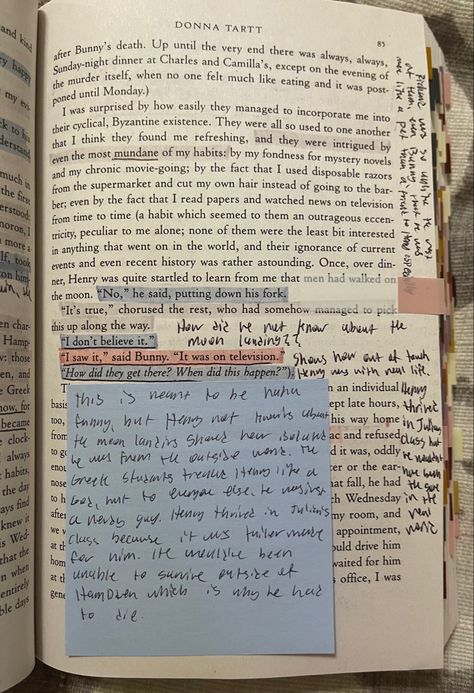 DONNA TARTT
85
after Bunny's death. Up until the very end there was always, always,
Sunday-night dinner at Charles and Camilla's, except on the evening of
the murder itself, when no one felt much like eating and it was post-
poned until Monday.)
I was surprised by how easily they managed to incorporate me into
their cyclical, Byzantine existence. They were all so used to one another
that I think they found me refreshing, and they were intrigued by
even the most mundane of my habits: by my fondness for mystery novels
and my chronic movie-going; by the fact that I used disposable razors
from the supermarket and cut my own hair instead of going to the bar-
ber; even by the fact that I read papers and watched news on television
from time to time (a habit which seemed to them an outrageous eccen-
tricity, peculiar to me alone; none of them were the least bit interested
in anything that went on in the world, and their ignorance of current
events and even recent history was rather astounding. Once, over din-
ner, Henry was quite startled to learn from me that men had walked on
the moon. "No," he said, putting down his fork.
"It's true," chorused the rest, who had somehow managed to pick
this up along the way.
How did he not know about the
moon landing??
"I don't believe it."
"I saw it," said Bunny. "It was on television."
"How did they get there? When did this happen?")
Shows how out of touch
Henry was with real life.
This is meant to be haha
funny, but Henry not knowing about
the moon landing should how isolated
he was from the outside world. The
Greek students treated Henry like a
God, but to everyone else he was just
a nerdy guy. Henry thrived in Julian's
class because it was tailor made
for him. He would've been
unable to survive outside of
Hampden which is why he had
to die.
an individual
ept late hours,
his way home
ac and refused
d it was, oddly
er or the ear-
that fall, he had
h Wednesday
my room, and
appointment,
ould drive him
waited for him
s office, I was
Henry
thrived
in Julian's
class but
he wouldn't
have been
the same
in the
real
world
Richard was so unlike the way
of them, even Bunny, that he was
more like a pet than a friend to them especially